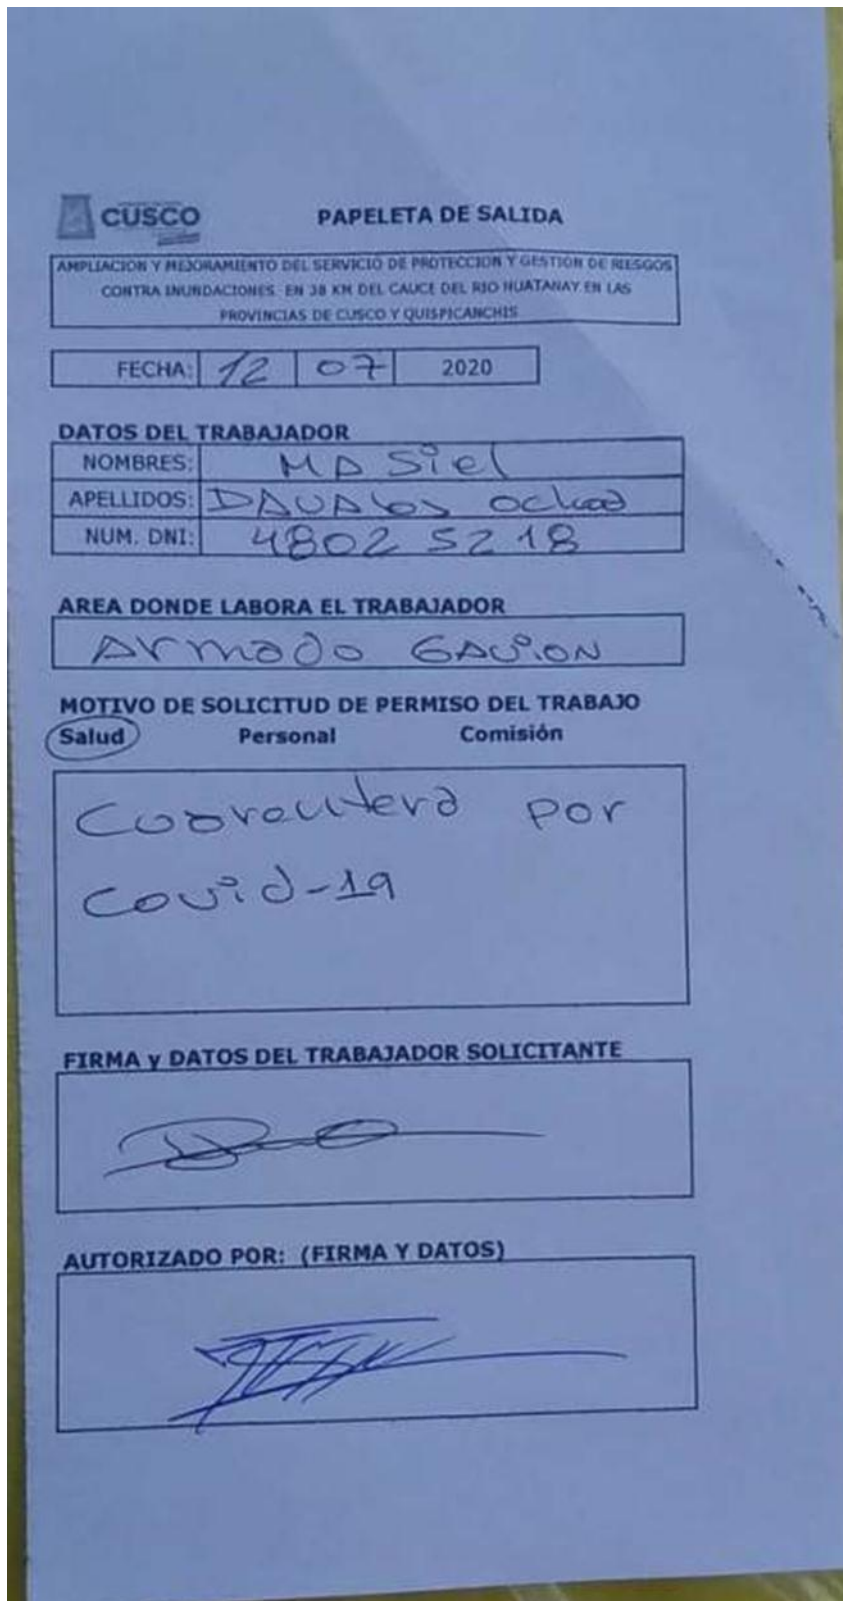 CUSCO
PAPELETA DE SALIDA
AMPLIACION Y MEJORAMIENTO DEL SERVICIO DE PROTECCION Y GESTION DE RIESGOS
CONTRA INUNDACIONES EN 38 KM DEL CAUCE DEL RIO HUATANAY EN LAS
PROVINCIAS DE CUSCO Y QUISPICANCHIS
FECHA: 12 07 2020
DATOS DEL TRABAJADOR
NOMBRES: MASiel
APELLIDOS: DAVAlos Ochoa
NUM. DNI: 48025218
AREA DONDE LABORA EL TRABAJADOR
Armado GAviON
MOTIVO DE SOLICITUD DE PERMISO DEL TRABAJO
Salud Personal Comisión
Cuorentera por
Covid-19
FIRMA y DATOS DEL TRABAJADOR SOLICITANTE
AUTORIZADO POR: (FIRMA Y DATOS)